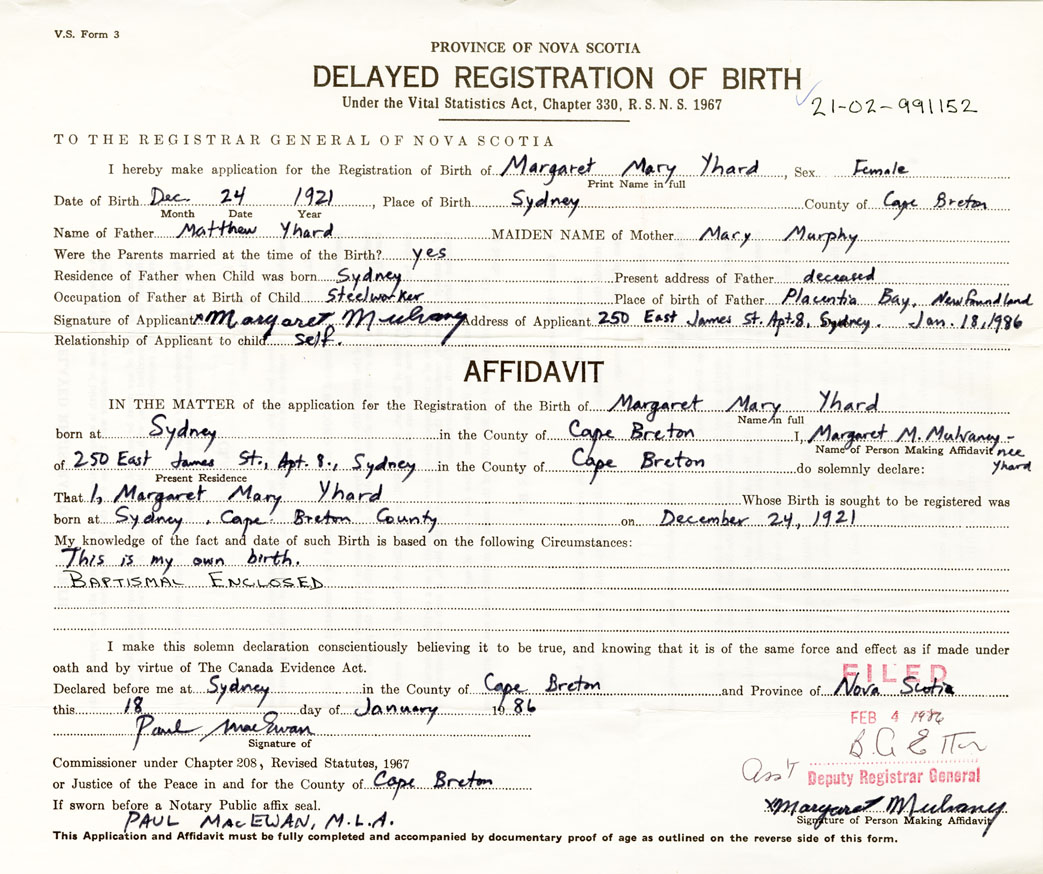 V.S. Form 3
PROVINCE OF NOVA SCOTIA
DELAYED REGISTRATION OF BIRTH
Under the Vital Statistics Act, Chapter 330, R.S.N.S. 1967
21-02-991152
TO THE REGISTRAR GENERAL OF NOVA SCOTIA
I hereby make application for the Registration of Birth of Margaret Mary Yhard, Sex Female
Print Name in full
Date of Birth Dec. 24 1921, Place of Birth Sydney County of Cape Breton
Month Date Year
Name of Father Matthew Yhard MAIDEN NAME of Mother Mary Murphy
Were the Parents married at the time of the Birth? yes
Residence of Father when Child was born Sydney Present address of Father deceased
Occupation of Father at Birth of Child Steelworker Place of birth of Father Placentia Bay, Newfoundland
Signature of Applicant x Margaret Mulvaney Address of Applicant 250 East James St. Apt. 8, Sydney. Jan. 18, 1986
Relationship of Applicant to child self.
AFFIDAVIT
IN THE MATTER of the application for the Registration of the Birth of Margaret Mary Yhard
Name in full
born at Sydney in the County of Cape Breton I, Margaret M. Mulvaney - nee Yhard
Name of Person Making Affidavit
of 250 East James St., Apt. 8., Sydney in the County of Cape Breton do solemnly declare:
Present Residence
That I, Margaret Mary Yhard Whose Birth is sought to be registered was
born at Sydney, Cape Breton County on December 24, 1921
My knowledge of the fact and date of such Birth is based on the following Circumstances:
This is my own birth.
BAPTISMAL ENCLOSED
I make this solemn declaration conscientiously believing it to be true, and knowing that it is of the same force and effect as if made under
oath and by virtue of The Canada Evidence Act.
FILED
Declared before me at Sydney in the County of Cape Breton and Province of Nova Scotia
this 18 day of January 1986
FEB 4 1986
Paul MacEwan
Signature of
Commissioner under Chapter 208, Revised Statutes, 1967
Ass't Deputy Registrar General
or Justice of the Peace in and for the County of Cape Breton
If sworn before a Notary Public affix seal.
x Margaret Mulvaney
Signature of Person Making Affidavit
PAUL MACEWAN, M.L.A.
This Application and Affidavit must be fully completed and accompanied by documentary proof of age as outlined on the reverse side of this form.